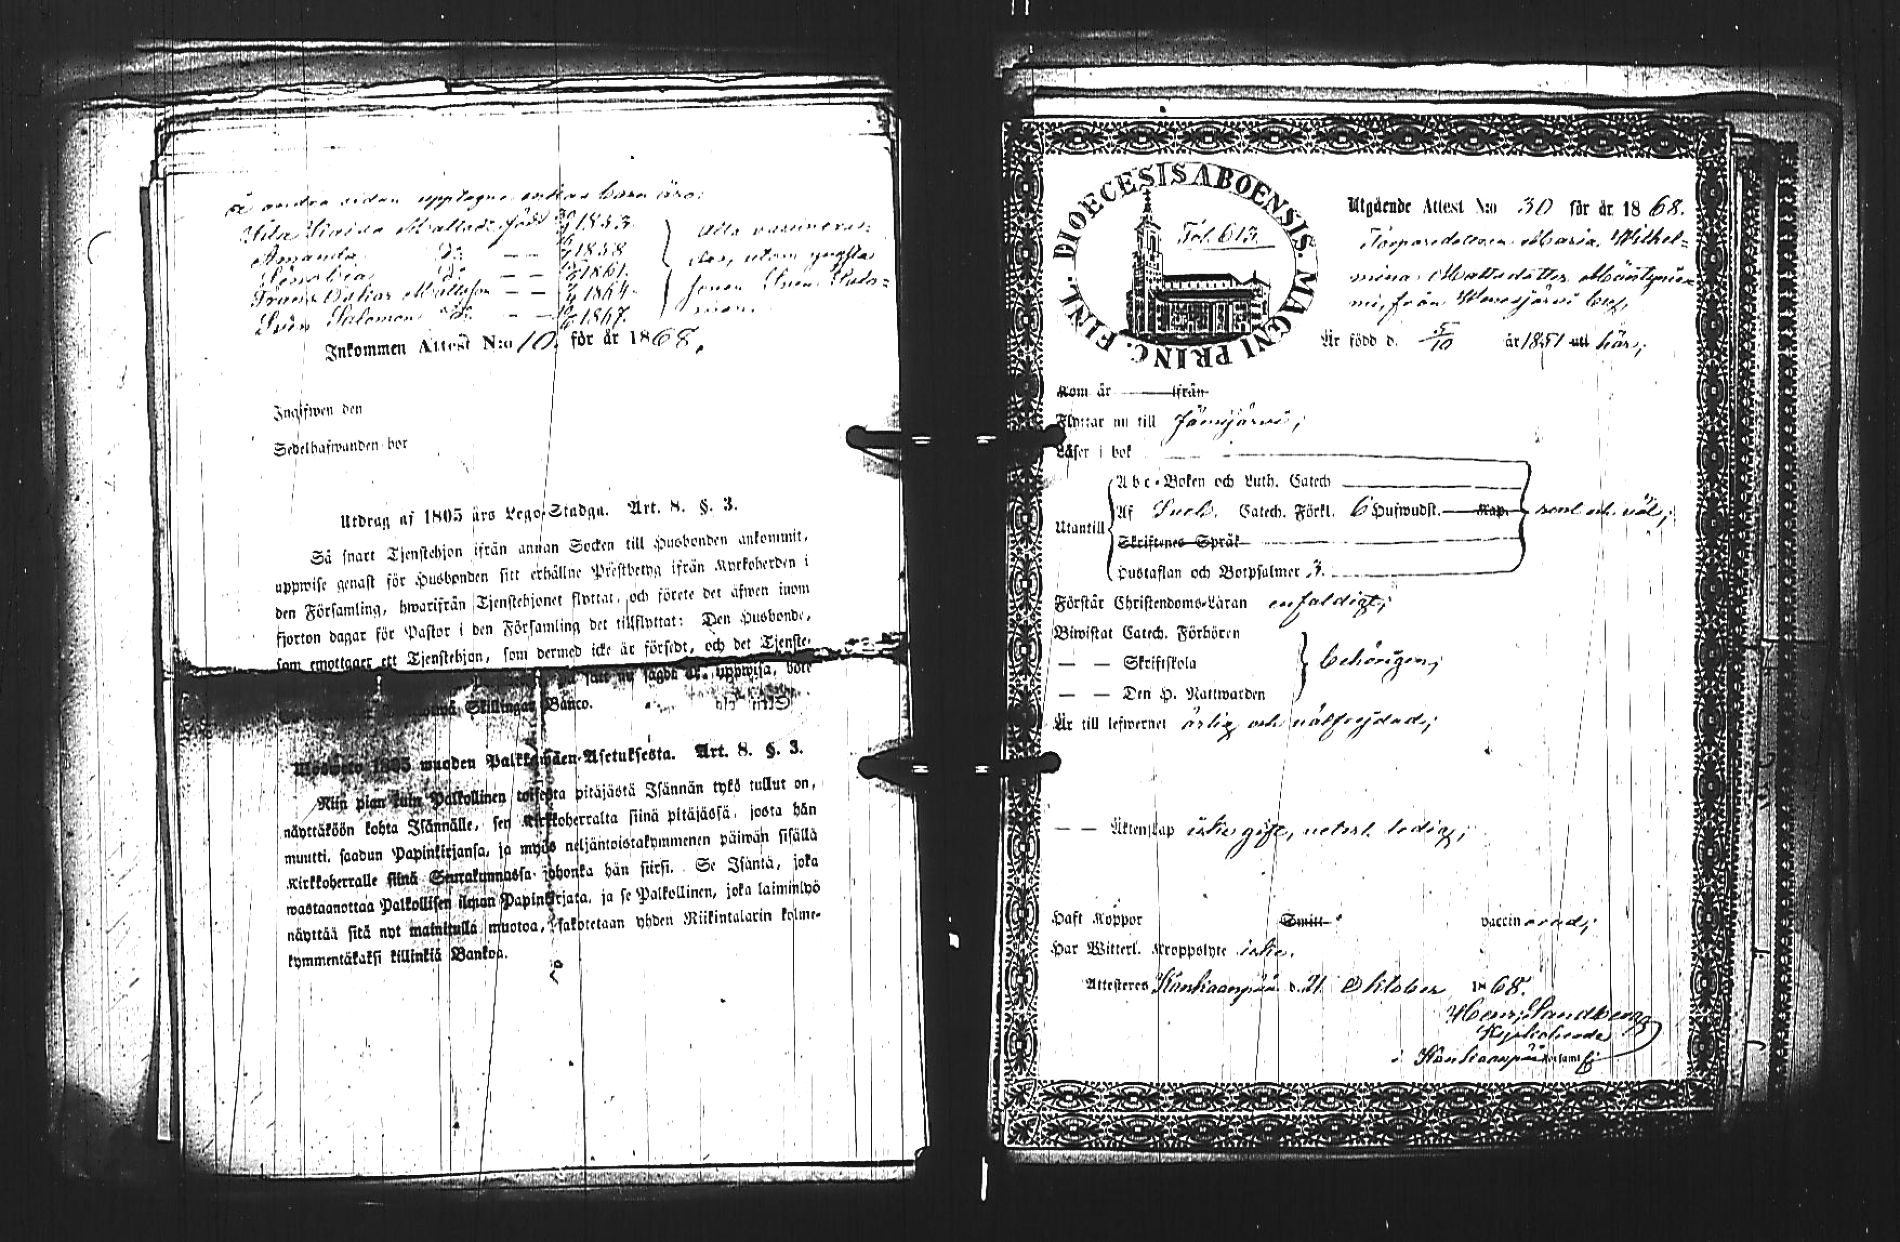 å andra sidan upptagne enkas barn äro:
Hilda Maria Mattsd. född 1853.
Amanda D:o — — 1858
D:o — — 1861.
Frans Oskar Mattsson — — 1864.
Sven Salomon D:o — — 1867.
Alla vaccinerade, utom yngsta
sonen Sven Salomon.
Inkommen Attest N:o 10. för år 1868.
Ingifwen den
Sedelhafwanden bor
Utdrag af 1805 års Lego-Stadga. Art. 8. §. 3.
Så snart Tjenstehjon ifrån annan Socken till Husbonden ankommit,
uppwise genast för Husbonden sitt erhållne Prestbetyg ifrån Kyrkoherden i
den Församling, hwarifrån Tjenstehjonet flyttat, och förete det äfwen inom
fjorton dagar för Pastor i den Församling det tillflyttat: Den Husbonde,
som emottager ett Tjenstehjon, som dermed icke är försedt, och det Tjenste-
sätt nu sagdt är, uppwisa, böte
Skillingar Banco.
1805 wuoden Palkkawäen-Asetuksesta. Art. 8. §. 3.
Niin pian kuin Palkollinen toisesta pitäjästä Isännän tykö tullut on,
näyttäköön kohta Isännälle, sen Kirkkoherralta siinä pitäjässä, josta hän
muutti, saadun Papinkirjansa, ja myös neljäntoistakymmenen päiwän sisällä
Kirkkoherralle siinä Seurakunnassa johonka hän siirsi. Se Isäntä, joka
wastaanottaa Palkollisen ilman Papinkirjata, ja se Palkollinen, joka laiminlyö
näyttää sitä nyt mainitulla muotoa, sakotetaan yhden Riikintalarin kolme-
kymmentäkaksi killinkiä Bankoa.
DIOECESIS ABOENSIS. MAGNI PRINC. FINL.
Fol. 613.
Utgående Attest N:o 30 för år 1868.
Torparedottren Maria Wilhel-
mina Mattsdotter Mäntynie-
mi, från Wenesjärvi by,
Är född d. 5/10 år 1851 utl här;
Kom år ifrån
Flyttar nu till Jämijärvi;
Läser i bok
Utantill
Abc-Boken och Luth. Catech
Af Sveb. Catech. Förkl. 6 Hufwudst. Kap.
Skriftenes Språk
Hustaflan och Botpsalmer 3.
Förstår Christendoms-Läran enfaldigt;
Biwistat Catech. Förhören
— — Skriftskola
— — Den H. Nattwarden
behörigen;
Är till lefwernet ärlig och välfrejdad;
— — Äktenskap icke gift, ledig;
Haft Koppor Smitt vaccinerad;
Har Witterl. Kroppslyte icke.
Attesteres Kankaanpää d. 21 Oktober 1868.
Henr. Sandberg
Kyrkoherde
i Kankaanpää församl.